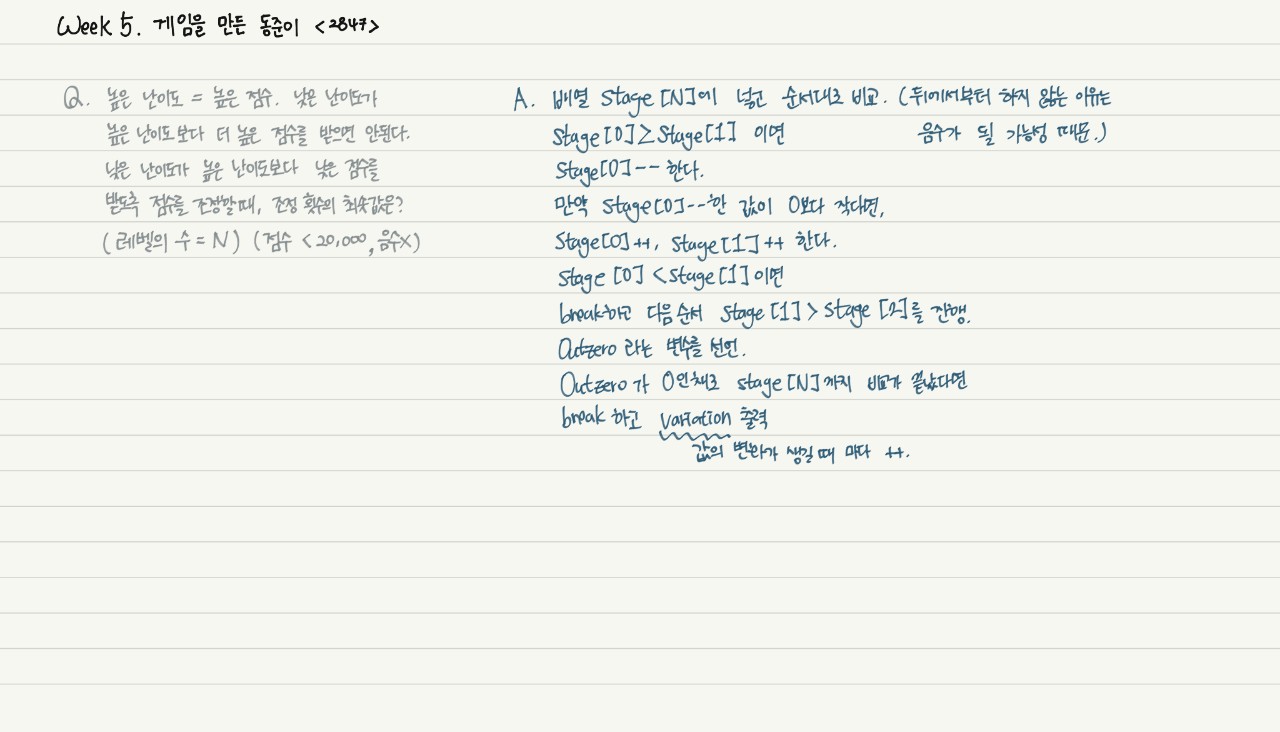 Week 5. 게임을 만든 동준이 <2847>
Q. 높은 난이도 = 높은 점수. 낮은 난이도가
높은 난이도보다 더 높은 점수를 받으면 안된다.
낮은 난이도가 높은 난이도보다 낮은 점수를
받도록 점수를 조정할 때, 조정 횟수의 최솟값은?
(레벨의 수 = N) (점수 < 20,000, 음수X)
A. 배열 Stage [N]에 넣고 순서대로 비교. (뒤에서부터 하지 않는 이유는
Stage[0]≥Stage[1] 이면 음수가 될 가능성 때문.)
Stage[0]-- 한다.
만약 Stage[0]--한 값이 0보다 작다면,
Stage[0]++, Stage[1]++ 한다.
Stage [0] <Stage[1]이면
break하고 다음 순서 Stage [1] > Stage [2]를 진행.
Outzero 라는 변수를 선언.
Outzero가 0인채로 stage [N]까지 비교가 끝났다면
break 하고 variation 출력
값의 변화가 생길 때 마다 ++.